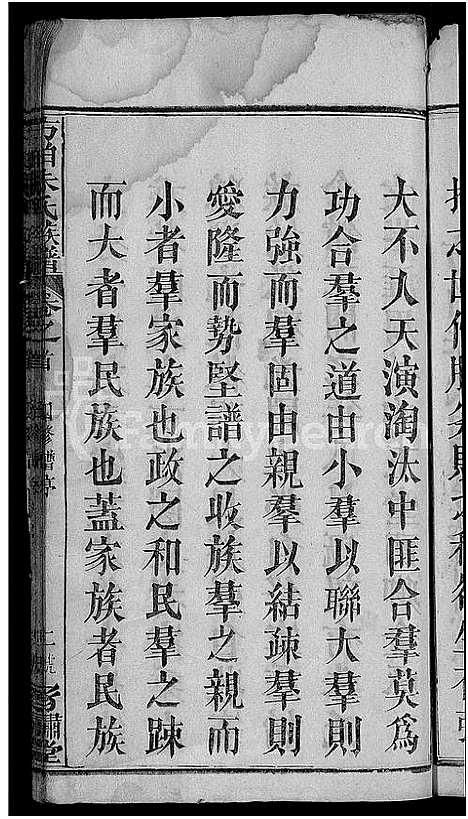 大不入天演淘汰中匪合羣莫爲
功合羣之道由小羣以聯大羣則
力強而羣固由親羣以結疎羣則
愛隆而勢堅譜之收族羣之親而
小者羣家族也政之和民羣之踈
而大者羣民族也蓋家族者民族
朱氏族譜 卷之首